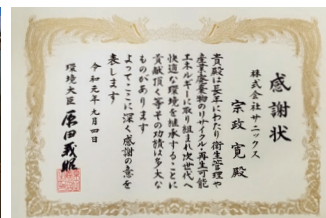 感謝状
株式会社サニックス
宗政 寛 殿
貴殿は長年にわたり衛生管理や
産業廃棄物のリサイクル・再生可能
エネルギーに取り組まれ次世代へ
快適な環境を継承することに
貢献頂く等その功績は多大な
ものがあります
よってここに深く感謝の意を
表します
令和元年九月四日
環境大臣 原田義昭